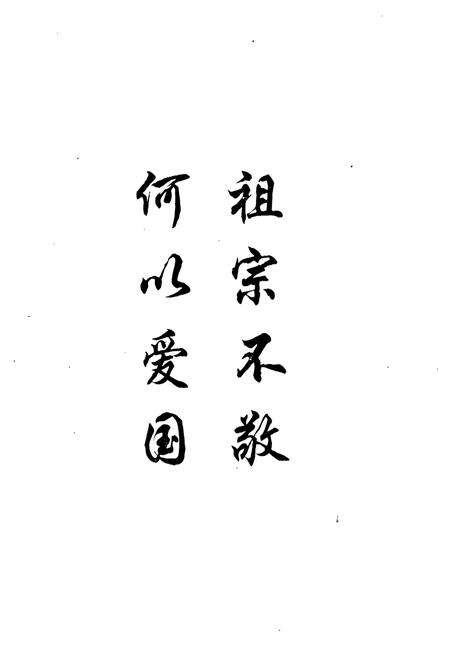 祖宗不敬
何以爱国